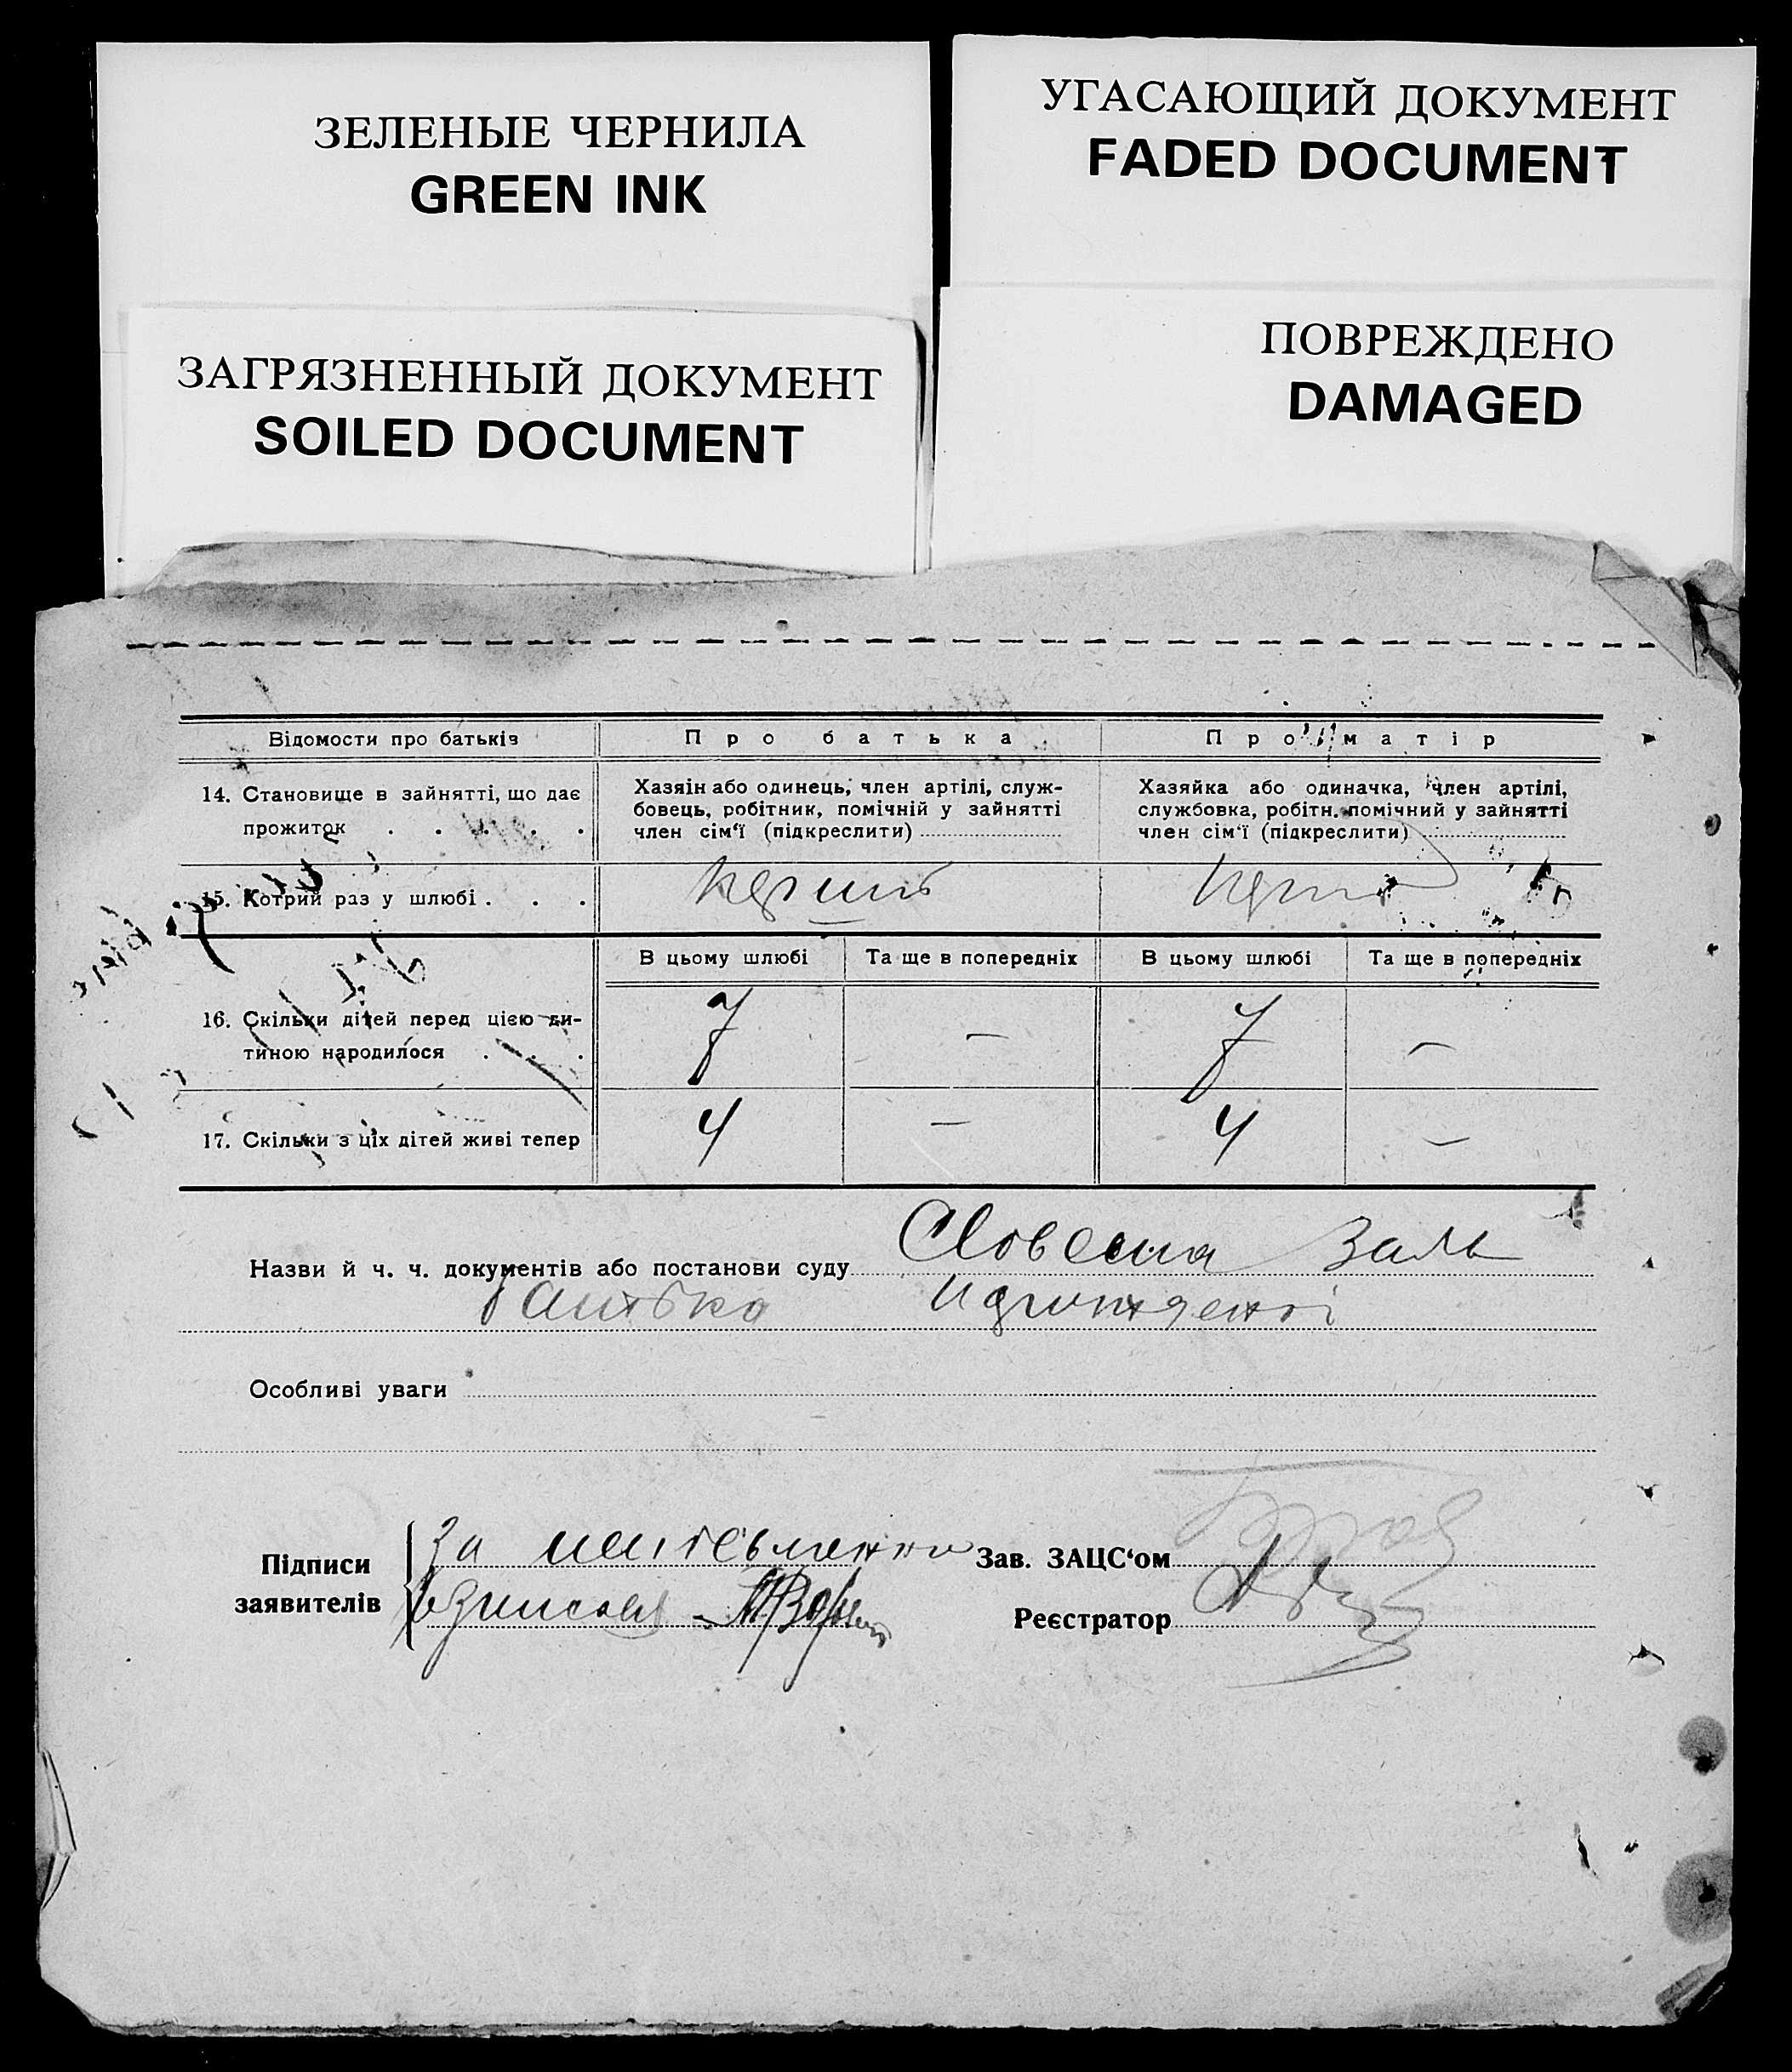 ЗЕЛЕНЫЕ ЧЕРНИЛА
GREEN INK
УГАСАЮЩИЙ ДОКУМЕНТ
FADED DOCUMENT
ЗАГРЯЗНЕННЫЙ ДОКУМЕНТ
SOILED DOCUMENT
ПОВРЕЖДЕНО
DAMAGED
Відомости про батьків
Про батька
Про матір
14. Становище в зайнятті, що дає
прожиток . . . . .
Хазяін або одинець, член артілі, служ-
бовець, робітник, помічній у зайнятті
член сім'ї (підкреслити)
Хазяйка або одиначка, член артілі,
службовка, робітн. помічний у зайнятті
член сім'ї (підкреслити)
15. Котрий раз у шлюбі . . .
В цьому шлюбі
Та ще в попередніх
В цьому шлюбі
Та ще в попередніх
16. Скільки дітей перед цією ди-
тиною народилося . . .
7 — 7 —
17. Скільки з ціх дітей живі тепер
4 — 4 —
Назви й ч. ч. документів або постанови суду Словесна заява
батька
Особливі уваги
Підписи
заявителів
За
Зав. ЗАЦС'ом
Реєстратор